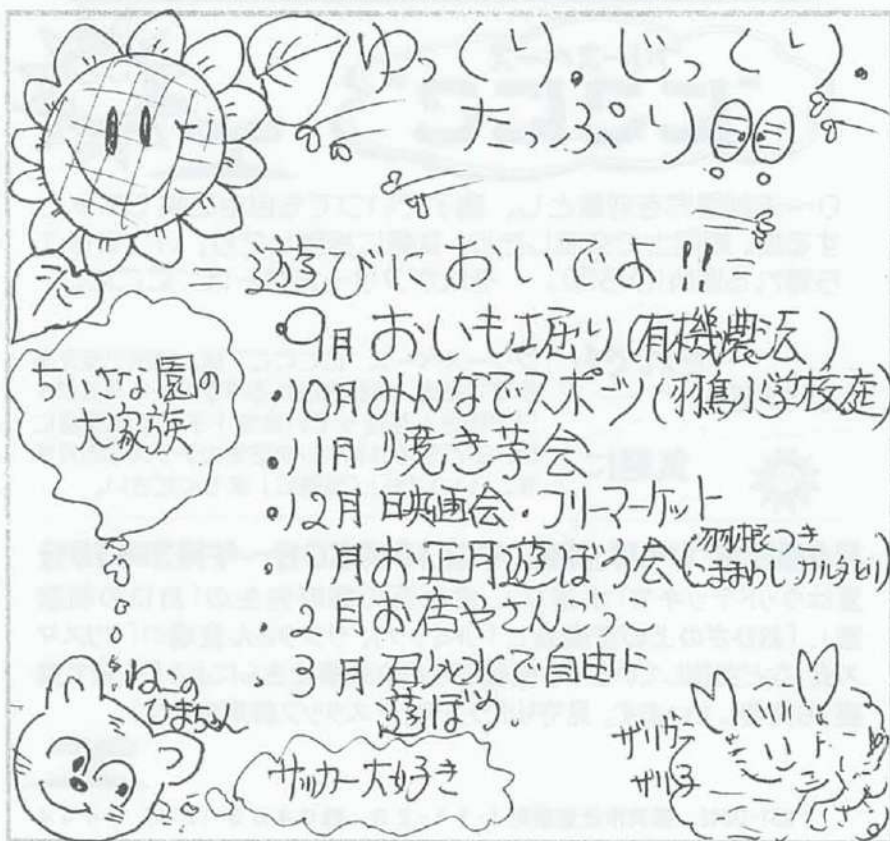 ゆっくり。じっくり。
たっぷり
遊びにおいでよ!!
・9月 おいも堀り(有機濃法)
・10月みんなでスポーツ(羽鳥小学校庭)
・11月 り焼き芋会
・12月 映画会・フリーマーケット
・1月お正月遊ぼう会(羽根つき
こままわし カルタとり)
・2月お店やさんごっこ
・3月 石少・水で自由に
遊ぼう。
ちいさな園の
大家族
ねーの
ひまちゃん
サッカー大好き
ザリウラ
ザリ子